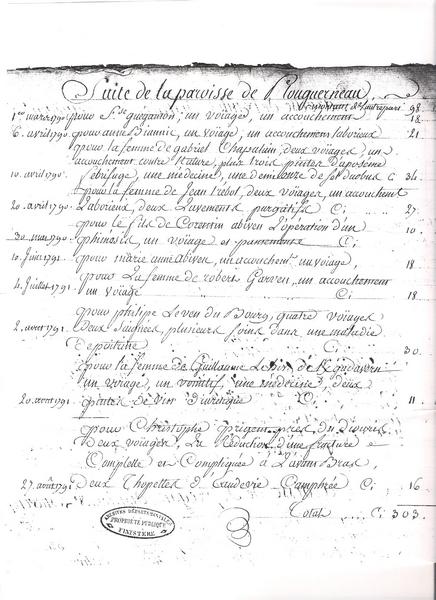 Suite de la paroisse de Plouguerneau
montant de l'autre part 98
1er mars 1790 pour Ste guégannon, un voiage, un accouchement 18
6 avril 1790 pour anne Biannic, un voiage, un accouchement laborieux 21
pour la femme de gabriel Chapalain, deux voiages, un
accouchement contre Nature, plus trois pintes d'aposème
10 avril 1790 febrifuge, une médecine, une demi onze de C. 34
pour la femme de Jean trebot, deux voiages, un accouchement
20 avril 1790 Laborieux, deux Lavements purgatifs C. 27
pour le fils de Corentin abiven L'opération d'un
30 mai 1790 phimosis, un voiage et pansements C. 10
10 Juin 1791 pour marie anne abiven, un accouchement, un voiage, 18
pour La femme de robert Garven, un accouchement
4 Juillet 1791 un voiage C. 18
pour philipe Leven du Bourg, quatre voiages
2 août 1791 Deux Saignées, plusieurs soins dans une maladie
De poitrine C. 30
pour la femme de Guillaume de
un voiage, un vomitif, une médecine, deux
20 août 1791 pintes de vin diurétique C. 11
pour Christophe prigent près du
Deux voiages, La Réduction d'une fracture
Complette et Compliquée à L'avant Bras,
27 août 1791 Deux Chopettes d'Eaudevie Camphrée C. 16
Total C. 303.
ARCHIVES DÉPARTEMENTALES
PROPRIÉTÉ PUBLIQUE
FINISTÈRE